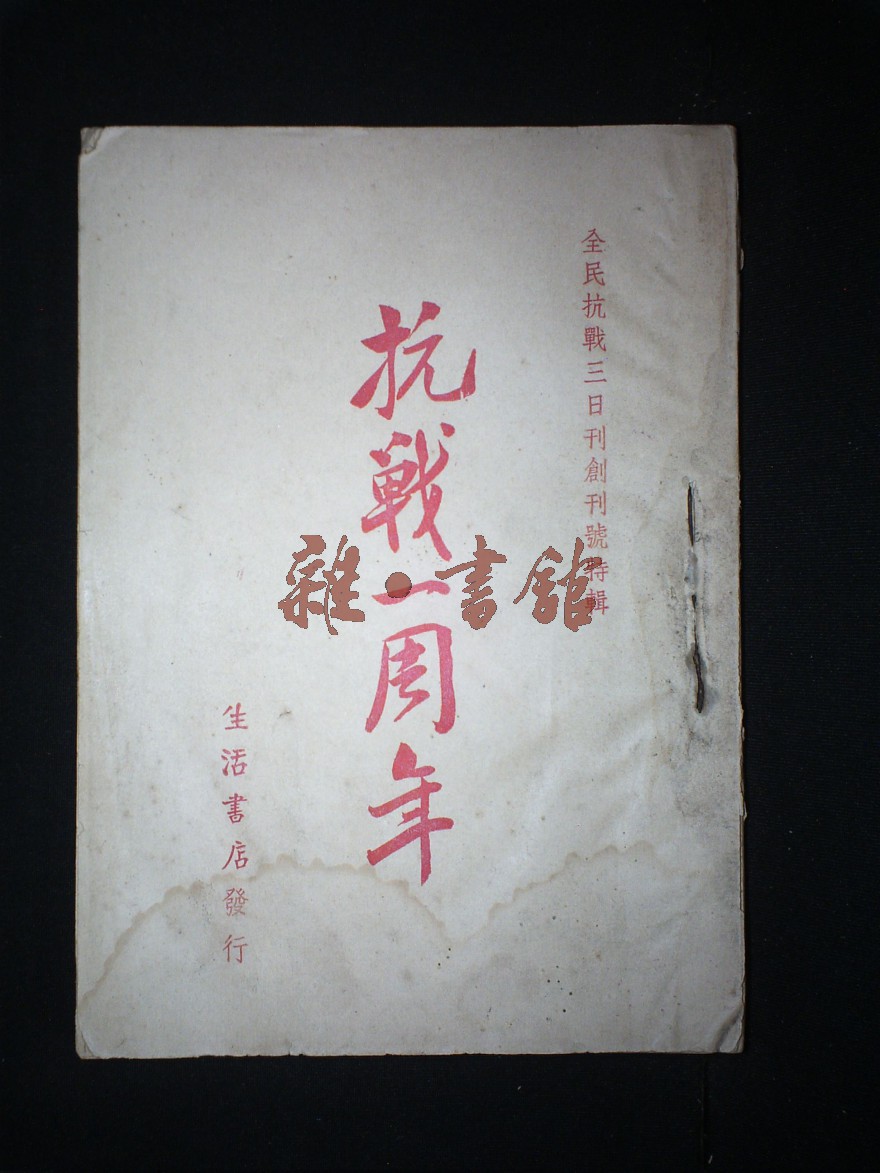 全民抗戰三日刊創刊號特輯
抗戰一周年
生活書店發行
雜·書館